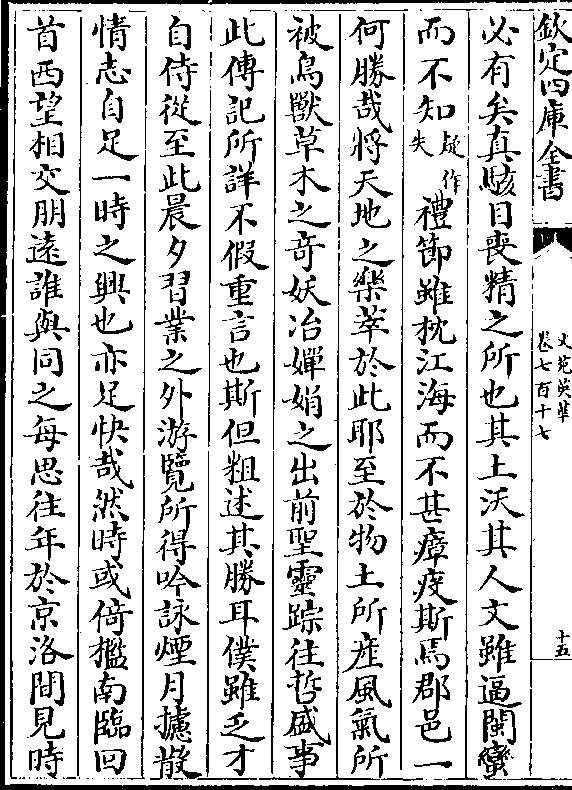 欽定四庫全書
文苑英華
卷七百十七
十五
必有矣真駭目喪精之所也其土沃其人文雖逼閩蠻
而不知疑作失禮節雖枕江海而不甚瘴疫斯焉郡邑一
何勝哉將天地之樂萃於此耶至於物土所産風氣所
被鳥獸草木之奇妖冶嬋娟之出前聖靈踪往哲盛事
此傳記所詳不假重言也斯但粗述其勝耳僕雖乏才
自侍從至此晨夕習業之外游覽所得吟詠煙月攄散
情志自足一時之興也亦足快哉然時或倚檻南臨回
首西望相交朋遠誰與同之每思往年於京洛間見時